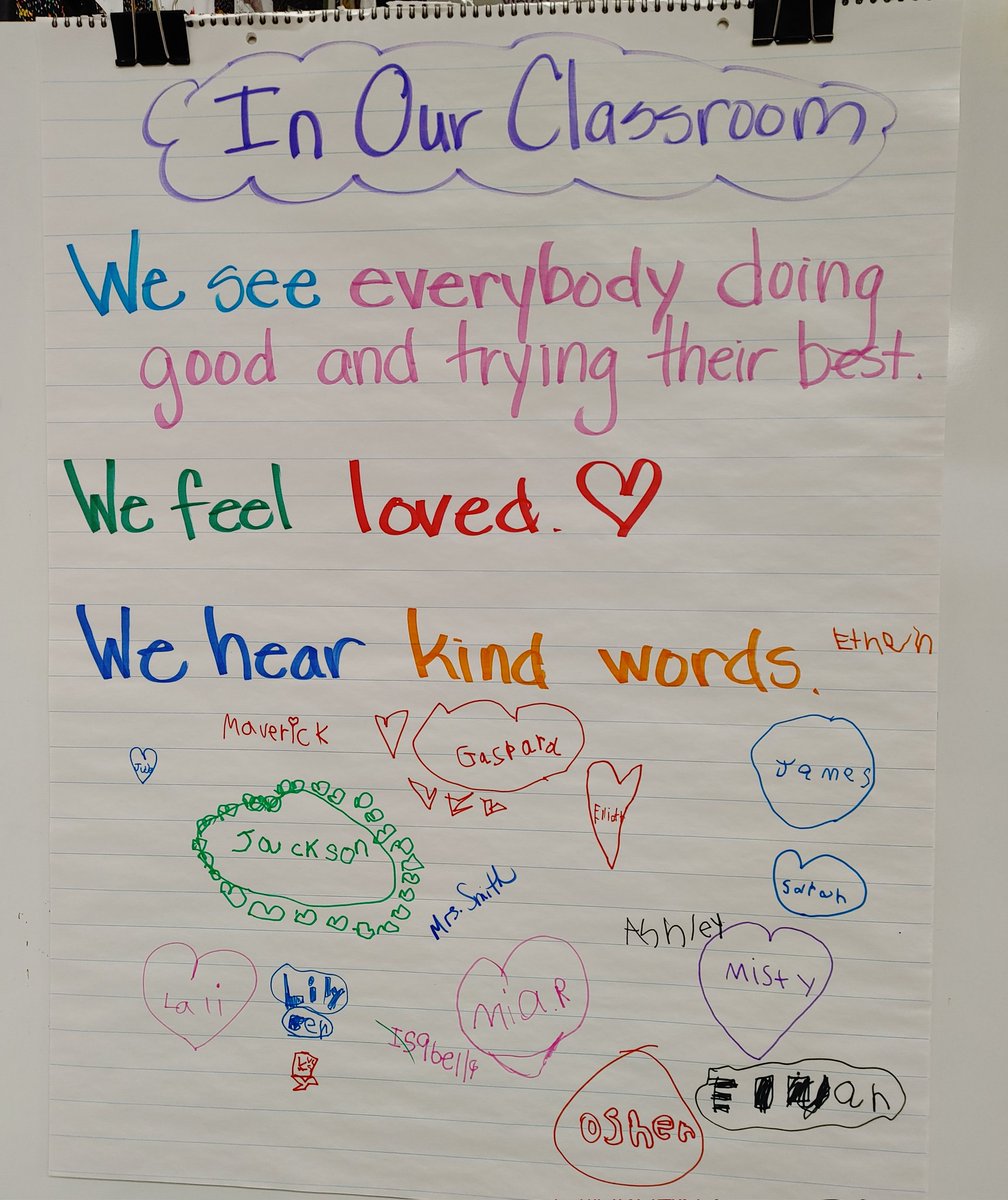 In Our Classroom
We see everybody doing
good and trying their best.
We feel loved.
We hear kind words.
Ethan
Maverick
Gaspard
James
Jackson
Sarah
Mrs. Smith
Ashley
Misty
Lily
Mia.R
Isabella
Osher